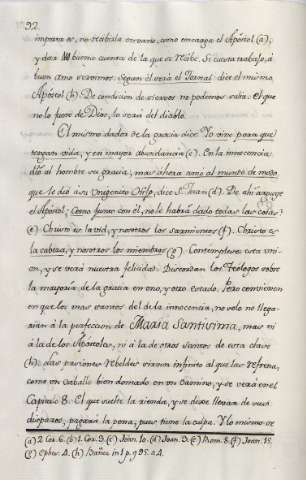 92.
impana es, no recibirla en vano, como encarga el Apóstol (a),
y dará buena cuenta de lo que se recibe. Si cuesta trabajo, á
buen amo servimos. Segun él será el Jornal dice el mismo
Apóstol (b) De condicion de siervos no podemos salir. El que
no lo fuere de Dios, lo será del diablo.
El mismo dador de la gracia dice Yo vine para que
tengan vida, y en mayor abundancia (c). En la innocencia
dió al hombre su gracia, mas ahora amó al mundo de modo
que le dió á su Unigenito Hijo, dice S. Juan (d). De ahi arguye
el Apóstol; Como junto con él, no le habrá dado todas las cosas?
(e) Christo es la vid, y nosotros los sarmientos (f). Christo es
la cabeza, y nosotros los miembros (g). Contemplese esta uni-
on, y se verá nuestra felicidad. Discordan los Teologos sobre
la mayoria de la gracia en uno, y otro estado. Pero convienen
en que los mas santos del de la innocencia, no solo no llega-
rian á la perfeccion de Maria Santisima, mas ni
á la de los Apóstoles, ni á la de otros santos de esta clave
(h). Las pasiones rebeldes sirven infinito al que las refrena,
como un caballo bien domado en su camino, y se verá en el
Capitulo 8. El que suelte la rienda, y se dexe llevar de sus
disparos, pagará la pena, pues tiene la culpa. Y lo mismo se
(a) 2 Cor. 6. (b) 1. Cor. 3. (c) Joan. 10. (d) Joan. 3. (e) Rom. 8. (f) Joan. 15.
(g) Ephes. 4. (h) Bañez in 1 p. q 95. a 4.